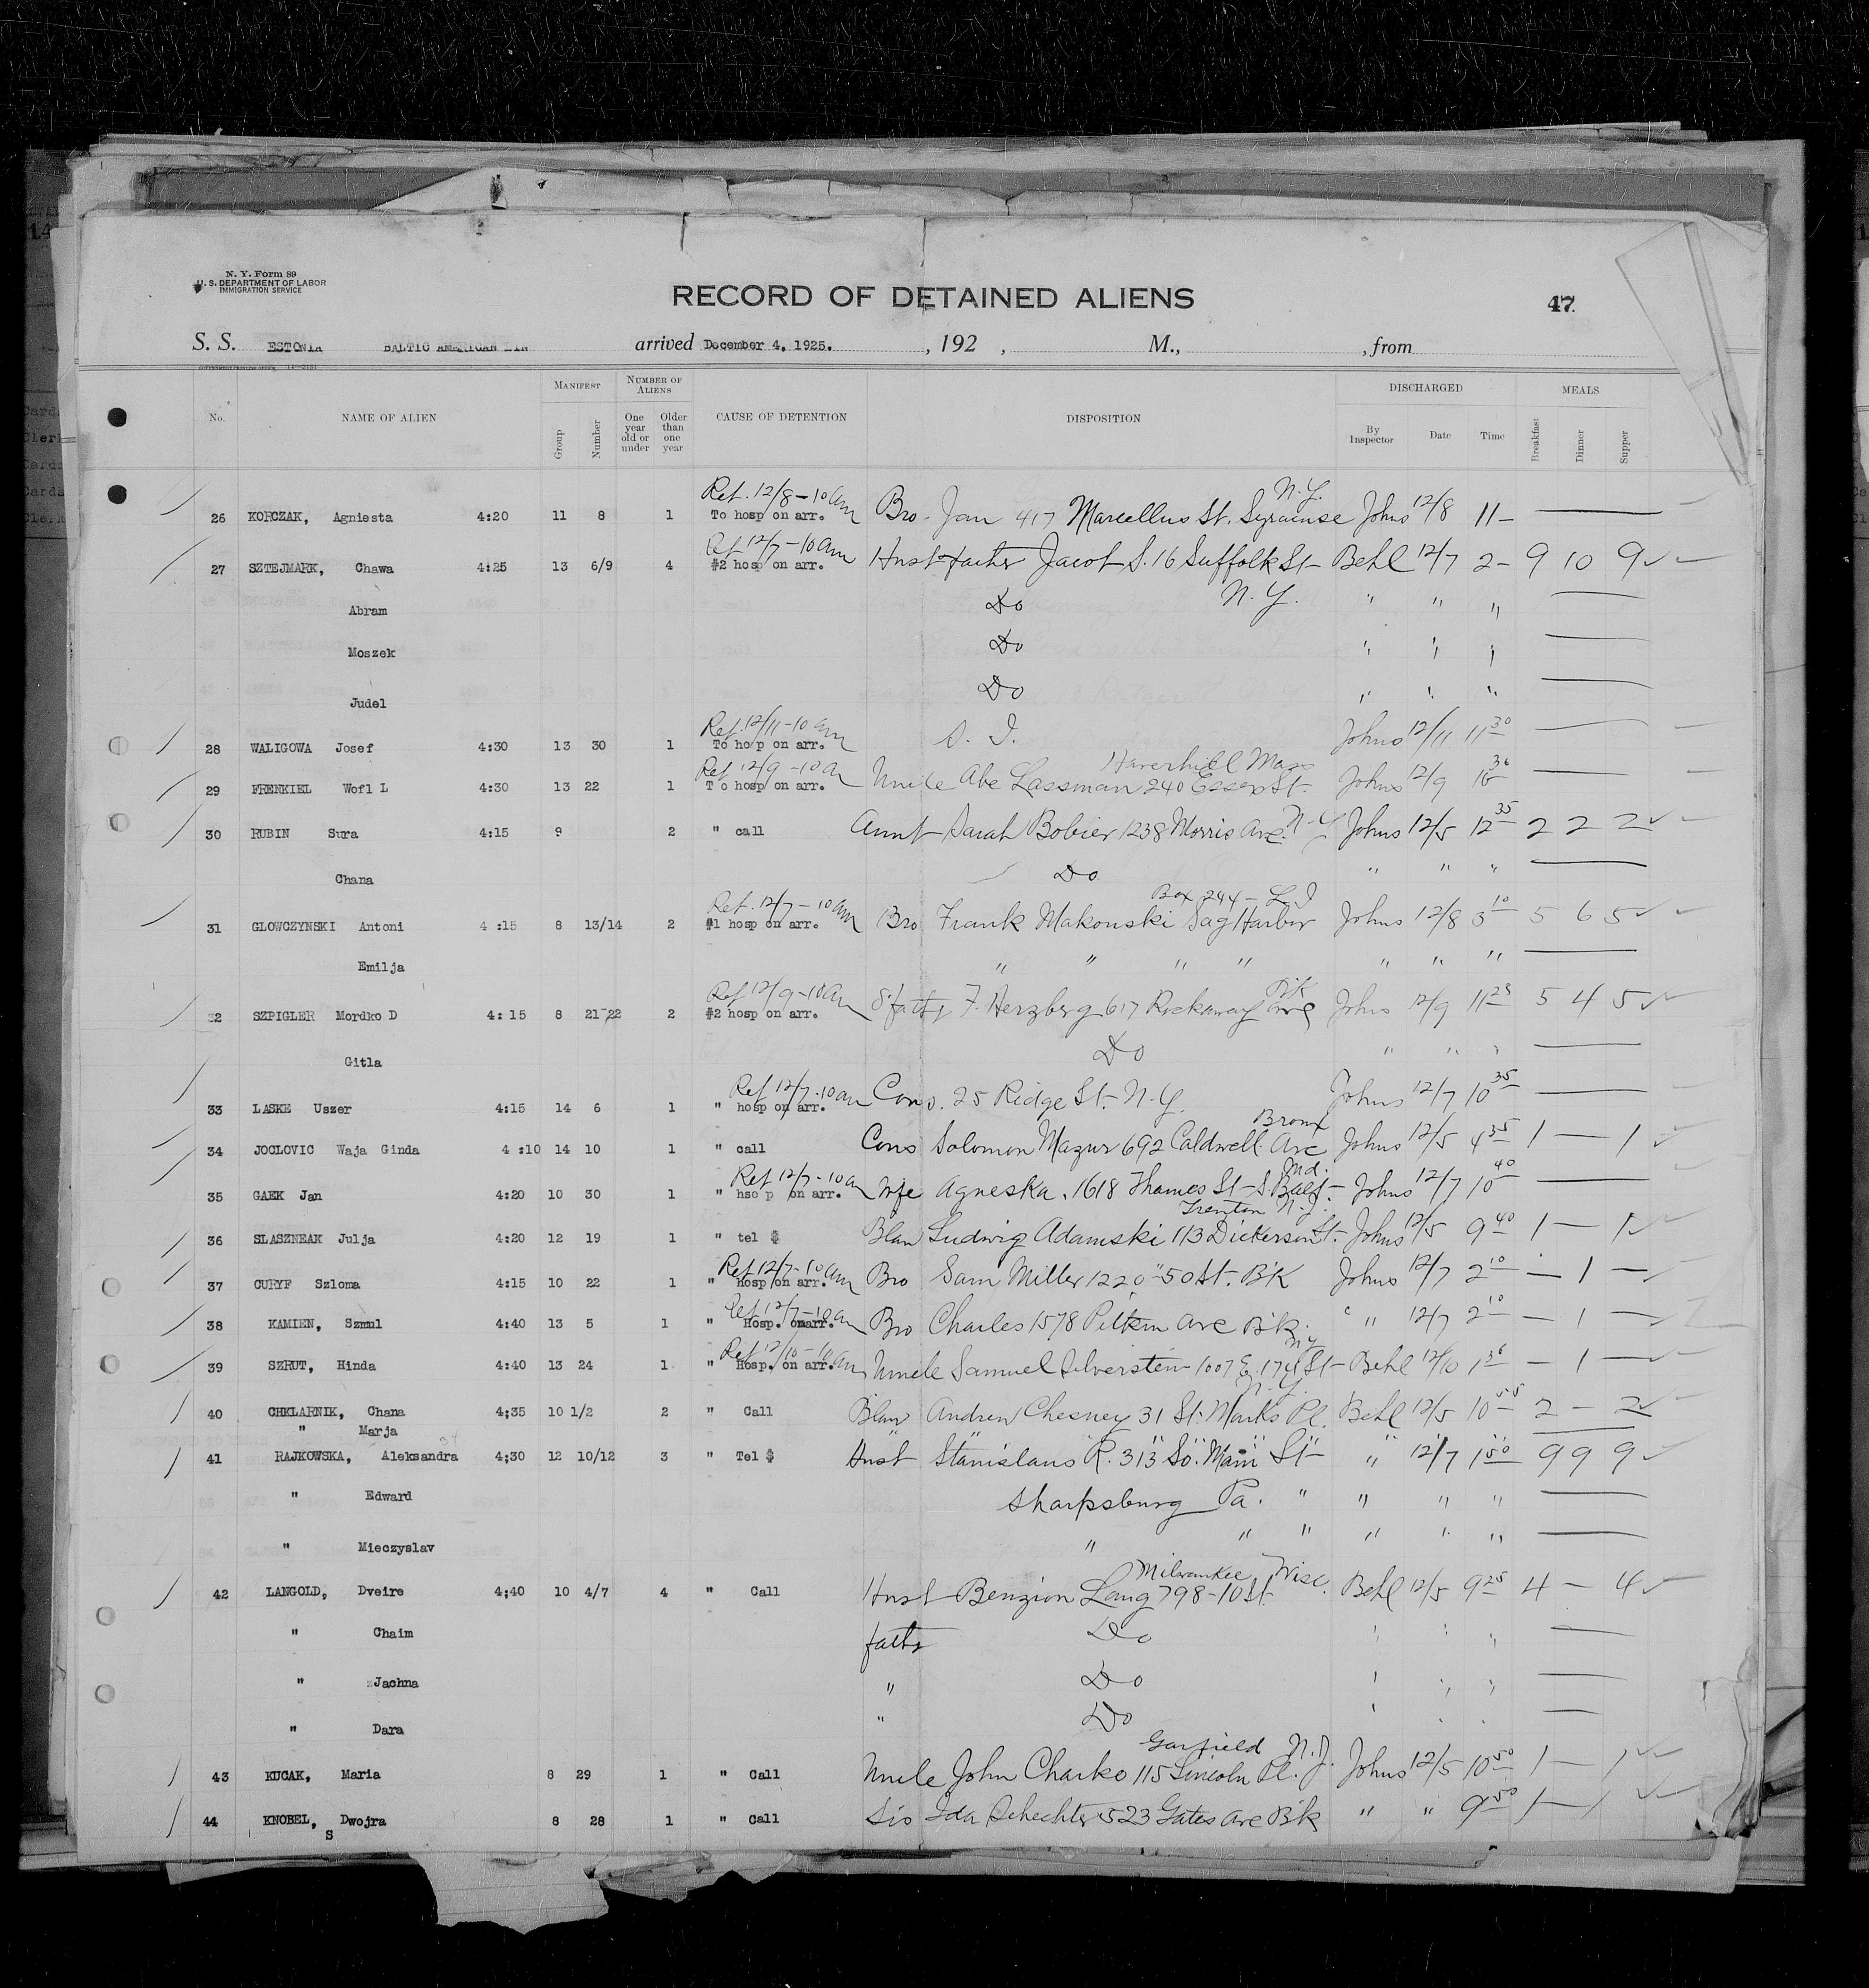 N. Y. Form 89
U. S. DEPARTMENT OF LABOR
IMMIGRATION SERVICE
RECORD OF DETAINED ALIENS
47
S. S. ESTONIA BALTIC AMERICAN LIN arrived December 4, 1925. , 192 , M., , from
No. NAME OF ALIEN MANIFEST Group Number NUMBER OF ALIENS One year old or under Older than one year CAUSE OF DETENTION DISPOSITION DISCHARGED By Inspector Date Time MEALS Breakfast Dinner Supper
Ret. 12/8-10am N.Y.
26 KORCZAK, Agniesta 4:20 11 8 1 To hosp on arr. Bro. Jan 417 Marcellus St. Syracuse Johns 12/8 11-
Ret 12/7-10am
27 SZTEJMARK, Chawa 4:25 13 6/9 4 #2 hosp on arr. Husb + father Jacob S. 16 Suffolk St- Behl 12/7 2- 9 10 9
Abram Do N.Y. " " "
Moszek Do " " "
Judel Do " " "
Ret. 12/11-10am
28 WALIGOWA Josef 4:30 13 30 1 To ho p on arr. S. I. Johns 12/11 11 30
Ret 12/9-10a Haverhill Mass
29 FRENKIEL Wofl L 4:30 13 22 1 T o hosp on arr. Uncle Abe Lassman 240 Essex St- Johns 12/9
30 RUBIN Sura 4:15 9 2 " call Aunt Sarah Bobier 1238 Morris Ave. N-Y Johns 12/5 12 35 2 2 2
Chana Do " " "
Ret. 12/7-10am Box 294 - L I
31 GLOWCZYNSKI Antoni 4 :15 8 13/14 2 #1 hosp on arr. Bro Frank Makouski Sag Harbor Johns 12/8 3 10 5 6 5
Emilja " " " " " " "
Ret 12/9-10am B'k
32 SZPIGLER Mordko D 4: 15 8 21-22 2 #2 hosp on arr. S/fathr F. Herzberg 617 Rockaway Ave Johns 12/9 11 25 5 4 5
Gitla Do " " "
Ret 12/7-10am
33 LASKE Uszer 4:15 14 6 1 " hosp on arr. Cous. 25 Ridge St. N-Y. Johns 12/7 10 35
Bronx
34 JOCLOVIC Waja Ginda 4 :10 14 10 1 " call Cous Solomon Mazur 692 Caldwell Ave Johns 12/5 4 35 1 — 1
Ret 12/7-10am Md.
35 GAEK Jan 4:20 10 30 1 " hso p on arr. Wife Agneska, 1618 Thames St- S. Balt- Johns 12/7 10 40
Trenton N.J.
36 SLASZNEAK Julja 4:20 12 19 1 " tel $ Blaw Ludwig Adamski 113 Dickerson St. Johns 12/5 9 40 1 — 1
Ret 12/7-10am
37 CURYF Szloma 4:15 10 22 1 " hosp on arr. Bro Sam Miller 1220-50 St. B'K Johns 12/7 2 10 — 1 —
Ret 12/7-10am
38 KAMIEN, Szmul 4:40 13 5 1 " Hosp. onarr. Bro Charles 1578 Pitkin Ave B'k. " " 12/7 2 10 — 1 —
Ret 12/10-10am N.Y
39 SZRUT, Hinda 4:40 13 24 1 " Hosp. on arr. Uncle Samuel Silverstein 1007 E. 174 St- Behl 12/10 — 1 —
N.Y.
40 CHKLARNIK, Chana 4;35 10 1/2 2 " Call Blaw Andrew Chesney 31 St. Marks Pl. Behl 12/5 10 55 2 — 2
" Marja
41 RAJKOWSKA, Aleksandra 4;30 12 10/12 3 " Tel $ Husb Stanislaus R. 313 So. Main St- " 12/7 1 50 9 9 9
" Edward Sharpsburg Pa. " " " "
" Mieczyslav " " " " " "
Milwaukee Wisc.
42 LANGOLD, Dveire 4;40 10 4/7 4 " Call Husb Benzion Lang 798-10 St. Behl 12/5 9 25 4 — 4
" Chaim fathr Do " " "
" Jachna " Do " " "
" Dara " Do
Garfield N.J.
43 KUCAK, Maria 8 29 1 " Call Uncle John Charko 115 Lincoln Pl. Johns 12/5 10 50 1 — 1
44 KNOBEL, Dwojra 8 28 1 " Call Sis Ida Schechter 523 Gates Ave B'k " " 9 50 1 — 1
S